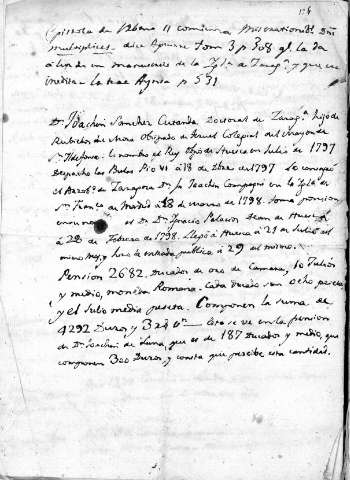 Epistola de Urbano II comienza Miserationibus Dñi
multiplices. dice Aguirre Tom 3 p 308 q.e la da
un manuscrito de la Igl.a de Zarag.a y que era
inedita la trae Aynsa p 531
D.n Joachin Sanchez Cutanda Doctoral de Zarag.a hijo de
Rubielos de Mora Obispado de Teruel Colegial del mayor de
S.n Ildefonso. le nombró el Rey Obpo de Huesca en Julio de 1797
Despachó las Bulas Pio VI à 18 de Dbre del 1797 Le consagró
el Arzob.o de Zaragoza D.n Joachin Company en la Igl.a de
S.n Fran.co de Madrid à 18 de marzo de 1798. Toma posesion
en su nombre el Dr. D.n Ignacio Palacin Dean de Huesca
à 28 de Febrero de 1798. Llegó à Huesca à 21 de Julio del
mismo año, y hizo la entrada publica à 29 del mismo.
Pension 2682. Ducados de oro de Camara, 10 Julios
y medio, moneda Romana. Cada Ducado son ocho pesetas,
y el Julio media peseta. Componen la suma de
4292 Duros, y 324 — Esto se ve en la pension
de D.n Joachin de Luna, que es de 187 Ducados y medio, que
componen 300 Duros, y consta que percibe esta cantidad.